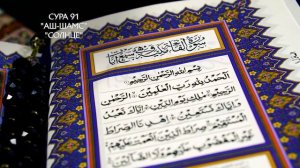 СУРА 91
"АШ-ШАМС"
"СОЛНЦЕ"
بِسْمِ اللَّهِ الرَّحْمَٰنِ الرَّحِيمِ
الْحَمْدُ لِلَّهِ رَبِّ الْعَالَمِينَ الرَّحْمَٰنِ
الرَّحِيمِ مَالِكِ يَوْمِ الدِّينِ إِيَّاكَ نَعْبُدُ
وَإِيَّاكَ نَسْتَعِينُ اهْدِنَا الصِّرَاطَ
الْمُسْتَقِيمَ صِرَاطَ الَّذِينَ أَنْعَمْتَ عَلَيْهِمْ
غَيْرِ الْمَغْضُوبِ عَلَيْهِمْ وَلَا الضَّالِّينَ